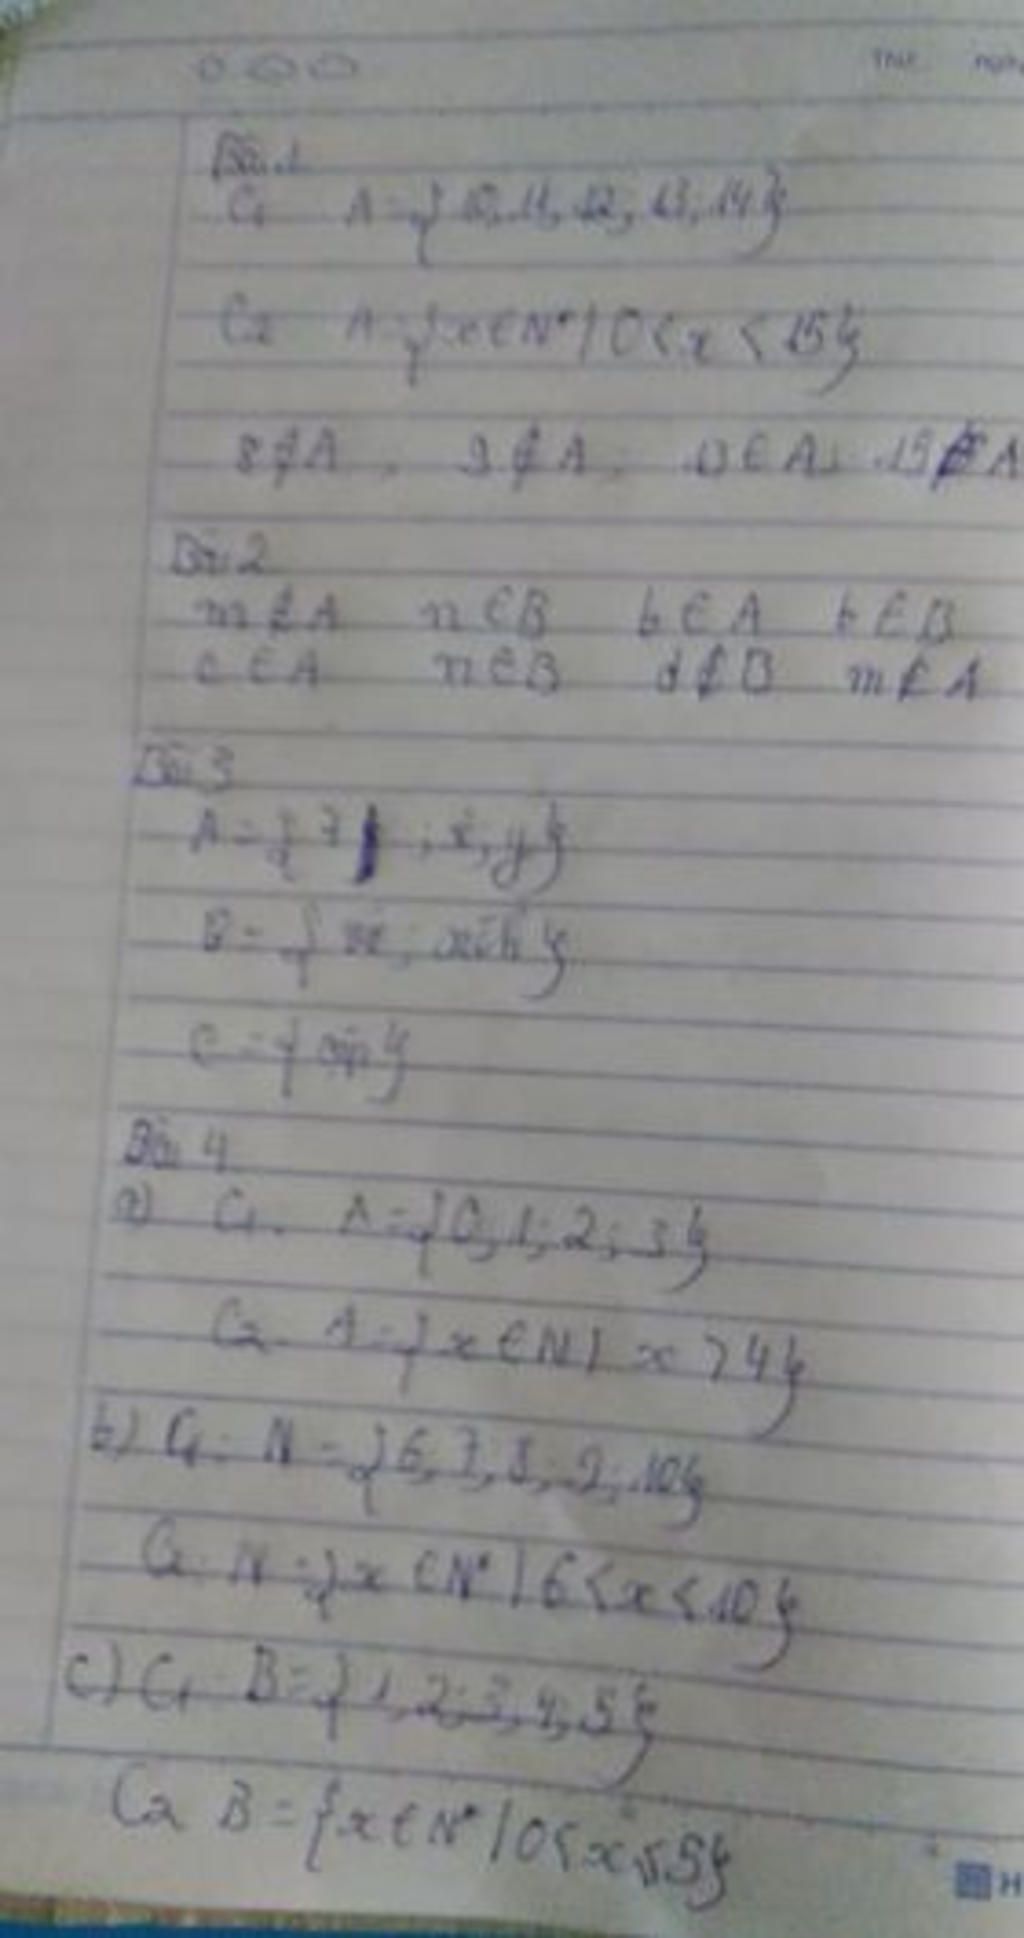 Bài 1
C1 A = { 10, 11, 12, 13, 14 }
C2 A = { x ∈ N* | 0 < x < 15 }
8 ∉ A, 9 ∉ A, ∈ A, 15 ∉ A
Bài 2
m ∉ A n ∈ B b ∈ A b ∈ B
c ∈ A n ∈ B d ∉ B m ∉ A
Bài 3
A = { 7 ; x, y }
B = { ; }
C = { }
Bài 4
a) C1. A = { 0, 1; 2; 3 }
C2. A = { x ∈ N | x > 4 }
b) C1. N = { 6, 7, 8, 9; 10 }
C2. N = { x ∈ N* | 6 < x < 10 }
c) C1. B = { 1, 2; 3, 4; 5 }
C2 B = { x ∈ N* | 0 < x ≤ 5 }